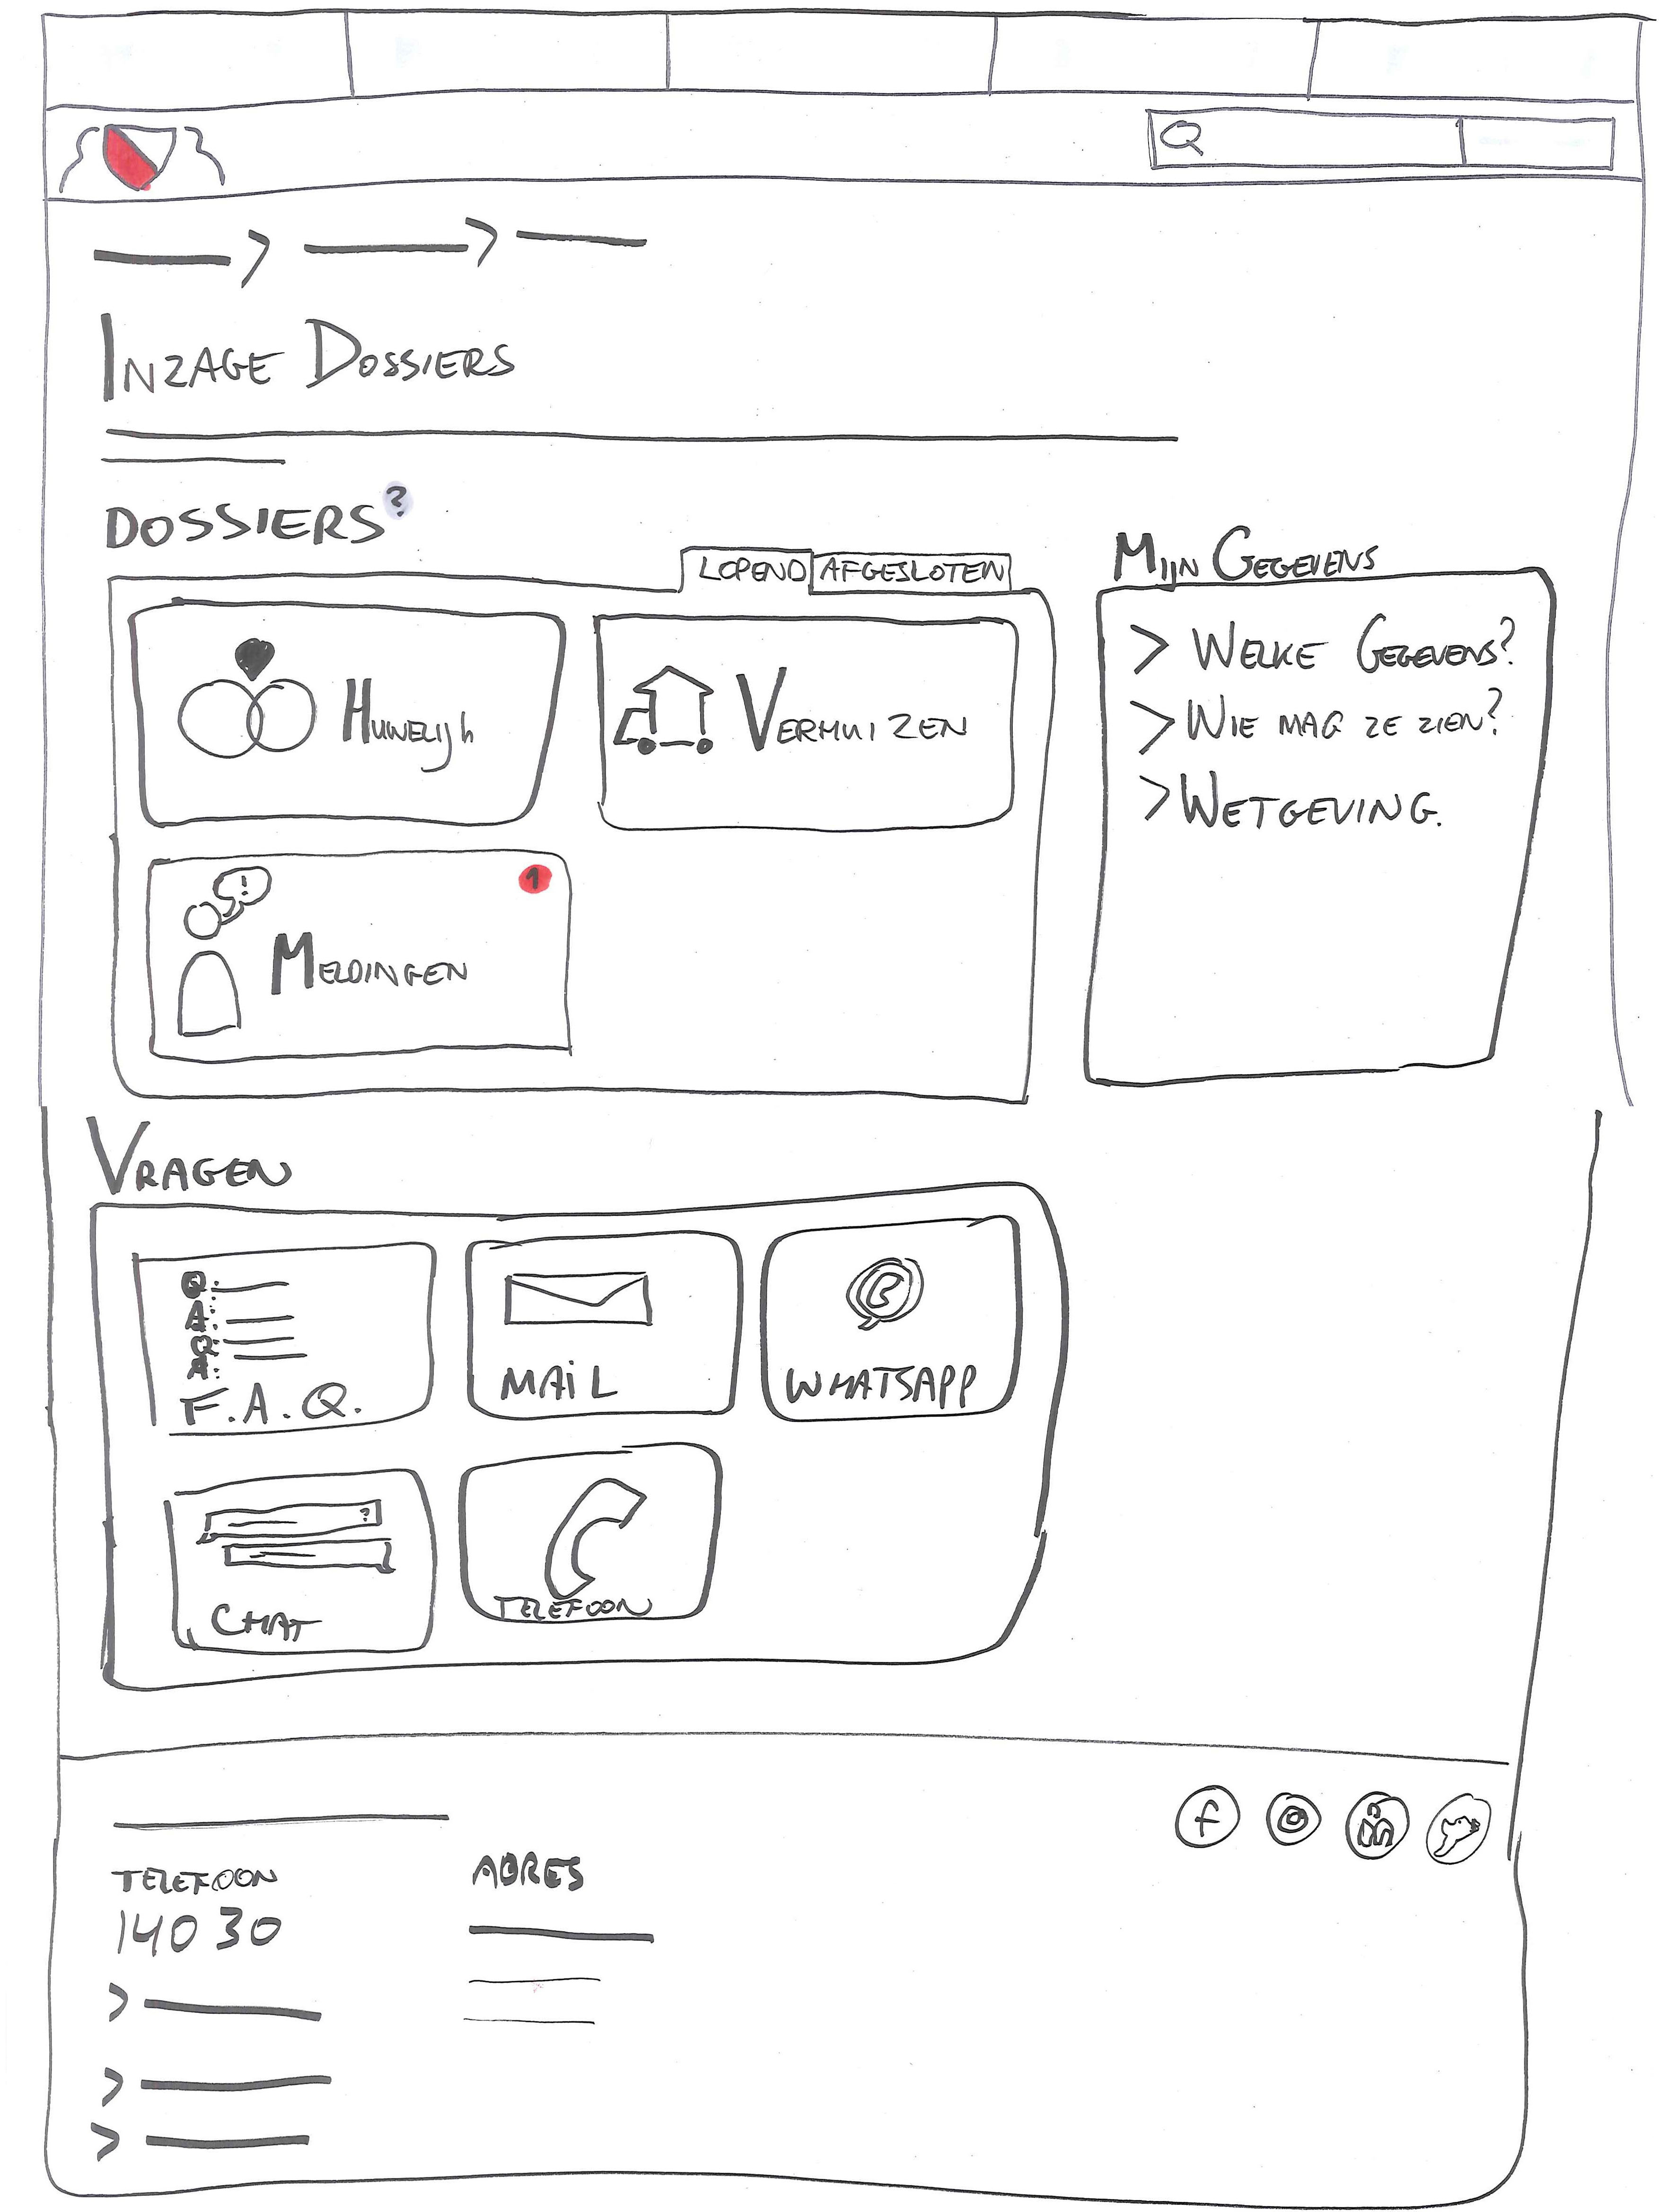 INZAGE DOSSIERS
DOSSIERS?
LOPEND AFGESLOTEN
HUWELIJK
VERHUIZEN
!
1
MELDINGEN
MIJN GEGEVENS
> WELKE GEGEVENS?
> WIE MAG ZE ZIEN?
> WETGEVING.
VRAGEN
Q:
A:
Q:
A:
F.A.Q.
MAIL
WHATSAPP
?
CHAT
TELEFOON
f
in
TELEFOON
14030
ADRES